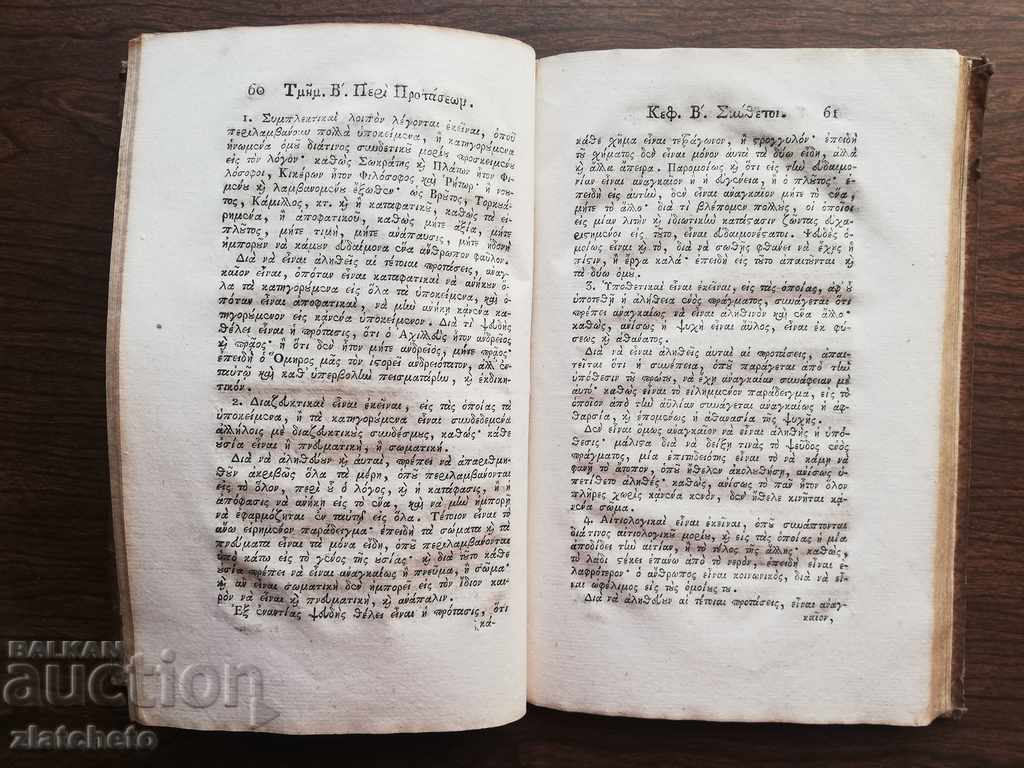 60 Τμῆμ. Β΄. Περὶ Προτάσεων.
1. Συμπλεκτικαὶ λοιπὸν λέγονται ἐκεῖναι, ὁποῦ
περιλαμβάνουν πολλὰ ὑποκείμενα, ἢ κατηγορούμενα
ἡνωμένα ὁμοῦ διά τινος συνδετικοῦ μορίου προσκειμένου
εἰς τὸν λόγον· καθὼς Σωκράτης ϗ Πλάτων ἦτον Φι-
λόσοφοι, Κικέρων ἦτον Φιλόσοφος καὶ Ῥήτωρ, ἢ νοου-
μένου ϗ λαμβανομένου ἔξωθεν· ὡς Βροῦτος, Τορκουά-
τος, Κάμιλλος, κτ. ϗ ἢ καταφατικοῦ, καθὼς τὰ εἰ-
ρημένα, ἢ ἀποφατικοῦ, καθὼς μήτε ἀξία, μήτε
πλοῦτος, μήτε τιμὴ, μήτε ἀνάπαυσις, μήτε ἡδονὴ
ἠμποροῦν νὰ κάμουν εὐδαίμονα ἕνα ἄνθρωπον φαῦλον.
Διὰ νὰ εἶναι ἀληθεῖς αἱ τέτοιαι προτάσεις, ἀναγ-
καῖον εἶναι, ὁπόταν εἶναι καταφατικαὶ νὰ ἀνήκουν ὅ-
λα τὰ κατηγορούμενα εἰς ὅλα τὰ ὑποκείμενα, καὶ ὁ-
πόταν εἶναι ἀποφατικαὶ, νὰ μὴν ἀνήκῃ κανένα κα-
τηγορούμενον εἰς κανένα ὑποκείμενον. Διὰ τὶ ψευδὴς
θέλει εἶναι ἡ πρότασις, ὅτι ὁ Ἀχιλλεὺς ἦτον ἀνδρεῖος
ϗ πρᾶος· ἢ ὅτι δὲν ἦτον μήτε ἀνδρεῖος, μήτε πρᾶος·
ἐπειδὴ ὁ Ὅμηρος μᾶς τὸν ἱστορεῖ ἀνδρειότατον, ἀλλ' ἐν
ταυτῷ καὶ καθ' ὑπερβολὴν πεισματάρην, ϗ ἐκδικη-
τικόν.
2. Διαζευκτικαὶ εἶναι ἐκεῖναι, εἰς τὰς ὁποίας τὰ
ὑποκείμενα, ἢ τὰ κατηγορούμενα εἶναι συνδεδεμένα
ἀλλήλοις μὲ διαζευκτικοὺς συνδέσμους, καθὼς· κάθε
οὐσία εἶναι ἢ πνευματικὴ, ἢ σωματική.
Διὰ νὰ ἀληθεύουν ϗ αὐταὶ, πρέπει νὰ ἀπαριθμη-
θοῦν ἀκριβῶς ὅλα τὰ μέρη, ὁποῦ περιλαμβάνονται
εἰς τὸ ὅλον, περὶ οὗ ὁ λόγος, ϗ ἡ κατάφασις, ἢ ἡ
ἀπόφασις νὰ ἀνήκῃ εἰς τὸ ἕνα, καὶ νὰ μὴν ἠμπορῇ
νὰ ἐφαρμόζεται ἐν ταυτῷ εἰς ὅλα. Τέτοιον εἶναι τὸ
ἄνω εἰρημένον παράδειγμα ἐπειδὴ τὰ σώματα ϗ τὰ
πνεύματα εἶναι τὰ μόνα εἴδη, ὁποῦ περιλαμβάνονται
ὑπὸ κάτω εἰς τὸ γένος τῆς οὐσίας· ϗ διὰ τοῦτο κάθε
οὐσία πρέπει νὰ εἶναι ἀναγκαίως ἢ πνεῦμα, ἢ σῶμα·
ϗ ἂν εἶναι σωματικὴ δὲν ἠμπορεῖ εἰς τὸν ἴδιον και-
ρὸν νὰ εἶναι ϗ πνευματικὴ, ϗ ἀνάπαλιν.
Ἐξ ἐναντίας ψευδὴς θέλει εἶναι ἡ πρότασις, ὅτι
κά-
Κεφ. Β΄. Σύνθετοι. 61
κάθε χῆμα εἶναι τετράγωνον, ἢ στρογγυλόν· ἐπειδὴ
τοῦ χήματος δὲν εἶναι μόνον αὐτὰ τὰ δύω εἴδη, ἀλλὰ
ϗ ἄλλα ἄπειρα. Παρομοίως ϗ ὅτι εἰς τὴν εὐδαιμο-
νίαν εἶναι ἀναγκαῖον ἢ ἡ εὐγένεια, ἢ ὁ πλοῦτος· ἐ-
πειδὴ εἰς αὐτὴν, δὲν εἶναι ἀναγκαῖον μήτε τὸ ἕνα,
μήτε τὸ ἄλλο· διὰ τὶ βλέπομεν πολλοὺς, οἱ ὁποῖοι
εἰς μίαν λιτὴν ϗ ἰδιωτικὴν κατάστασιν ζῶντας εὐχα-
ριστημένοι εἰς τοῦτο, εἶναι εὐδαιμονέστατοι. Ψευδὲς ὁ-
μοίως εἶναι ϗ τὸ, διὰ νὰ σωθῇς φθάνει νὰ ἔχῃς ἢ
πίστιν, ἢ ἔργα καλά· ἐπειδὴ εἰς τοῦτο ἀπαιτοῦνται ϗ
τὰ δύω ὁμοῦ.
3. Ὑποθετικαὶ εἶναι ἐκεῖναι, εἰς τὰς ὁποίας, ἀφ' οὗ
ὑποτεθῇ ἡ ἀλήθεια ἑνὸς πράγματος, συνάγεται ὅτι
πρέπει ἀναγκαίως νὰ εἶναι ἀληθινὸν καὶ ἕνα ἄλλο·
καθὼς, ἀνίσως ἡ ψυχὴ εἶναι ἄϋλος, εἶναι ἐκ φύ-
σεως ϗ ἀθάνατος.
Διὰ νὰ εἶναι ἀληθεῖς αὐταὶ αἱ προτάσεις, ἀπαι-
τεῖται ὅτι ἡ συνέπεια, ὁποῦ παράγεται ἀπὸ τὴν
ὑπόθεσιν τοῦ πρώτου, νὰ ἔχῃ ἀναγκαίαν συνάφειαν μὲ
αὐτό· καθὼς εἶναι τὸ εἰλημμένον παράδειγμα, εἰς τὸ
ὁποῖον ἀπὸ τὴν ἀϋλίαν συνάγεται ἀναγκαίως ἡ ἀφ-
θαρσία, ϗ ἑπομένως ἡ ἀθανασία τῆς ψυχῆς.
Δὲν εἶναι ὅμως ἀναγκαῖον νὰ εἶναι ἀληθὴς ϗ ἡ ὑπό-
θεσις· μάλιστα διὰ νὰ δείξῃ τινὰς τὸ ψεῦδος ἑνὸς
πράγματος, μία ἐπιτηδειότης εἶναι τὸ νὰ κάμῃ νὰ
φανῇ τὸ ἄτοπον, ὁποῦ ἤθελεν ἀκολουθήσῃ, ἀνίσως ὑ-
πετίθετο ἀληθές· καθὼς, ἀνίσως τὸ πᾶν ἦτον ὅλον
πλῆρες χωρὶς κανένα κενὸν, δὲν ἤθελε κινῆται κα-
νένα σῶμα.
4. Αἰτιολογικαὶ εἶναι ἐκεῖναι, ὁποῦ συνάπτονται
διά τινος αἰτιολογικοῦ μορίου, ϗ εἰς τὰς ὁποίας ἡ μία
ἀποδίδει τὴν αἰτίαν, ἢ τὸ τέλος τῆς ἄλλης· καθὼς,
τὸ λάδι στέκει ἐπάνω ἀπὸ τὸ νερὸν, ἐπειδὴ εἶναι ἐ-
λαφρότερον· ὁ ἄνθρωπος εἶναι κοινωνικὸς, διὰ νὰ εἶ-
ναι ὠφέλιμος εἰς τοὺς ὁμοίους του.
Διὰ νὰ ἀληθεύουν αἱ τέτοιαι προτάσεις, εἶναι ἀναγ-
καῖον,
BALKAN
auction
zlatcheto